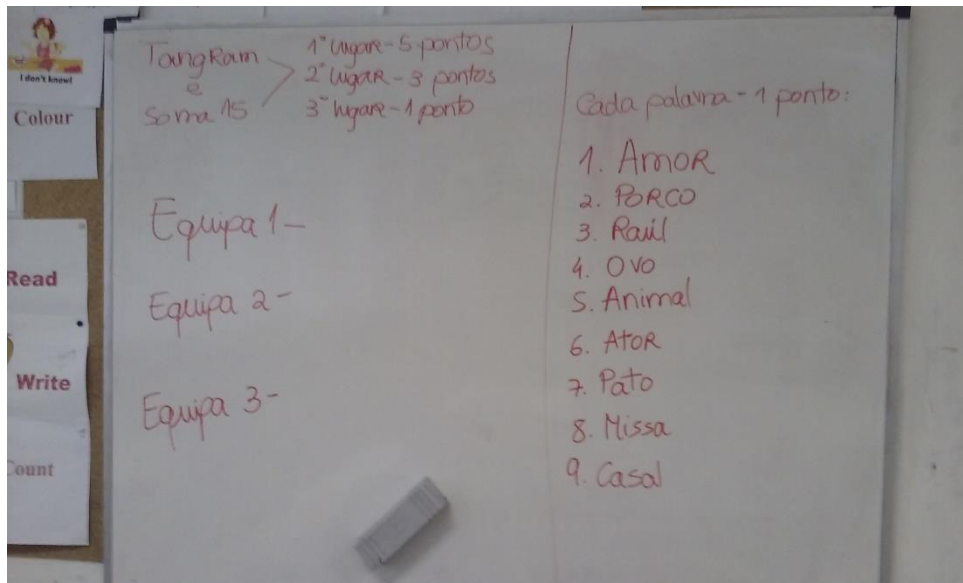 I don't know!
Colour
Read
Write
Count
Tangram
e
Soma 15
1º lugar - 5 pontos
2º lugar - 3 pontos
3º lugar - 1 ponto
Equipa 1 -
Equipa 2 -
Equipa 3 -
Cada palavra - 1 ponto:
1. Amor
2. PORCO
3. Raúl
4. OVO
5. Animal
6. Ator
7. Pato
8. Missa
9. Casal